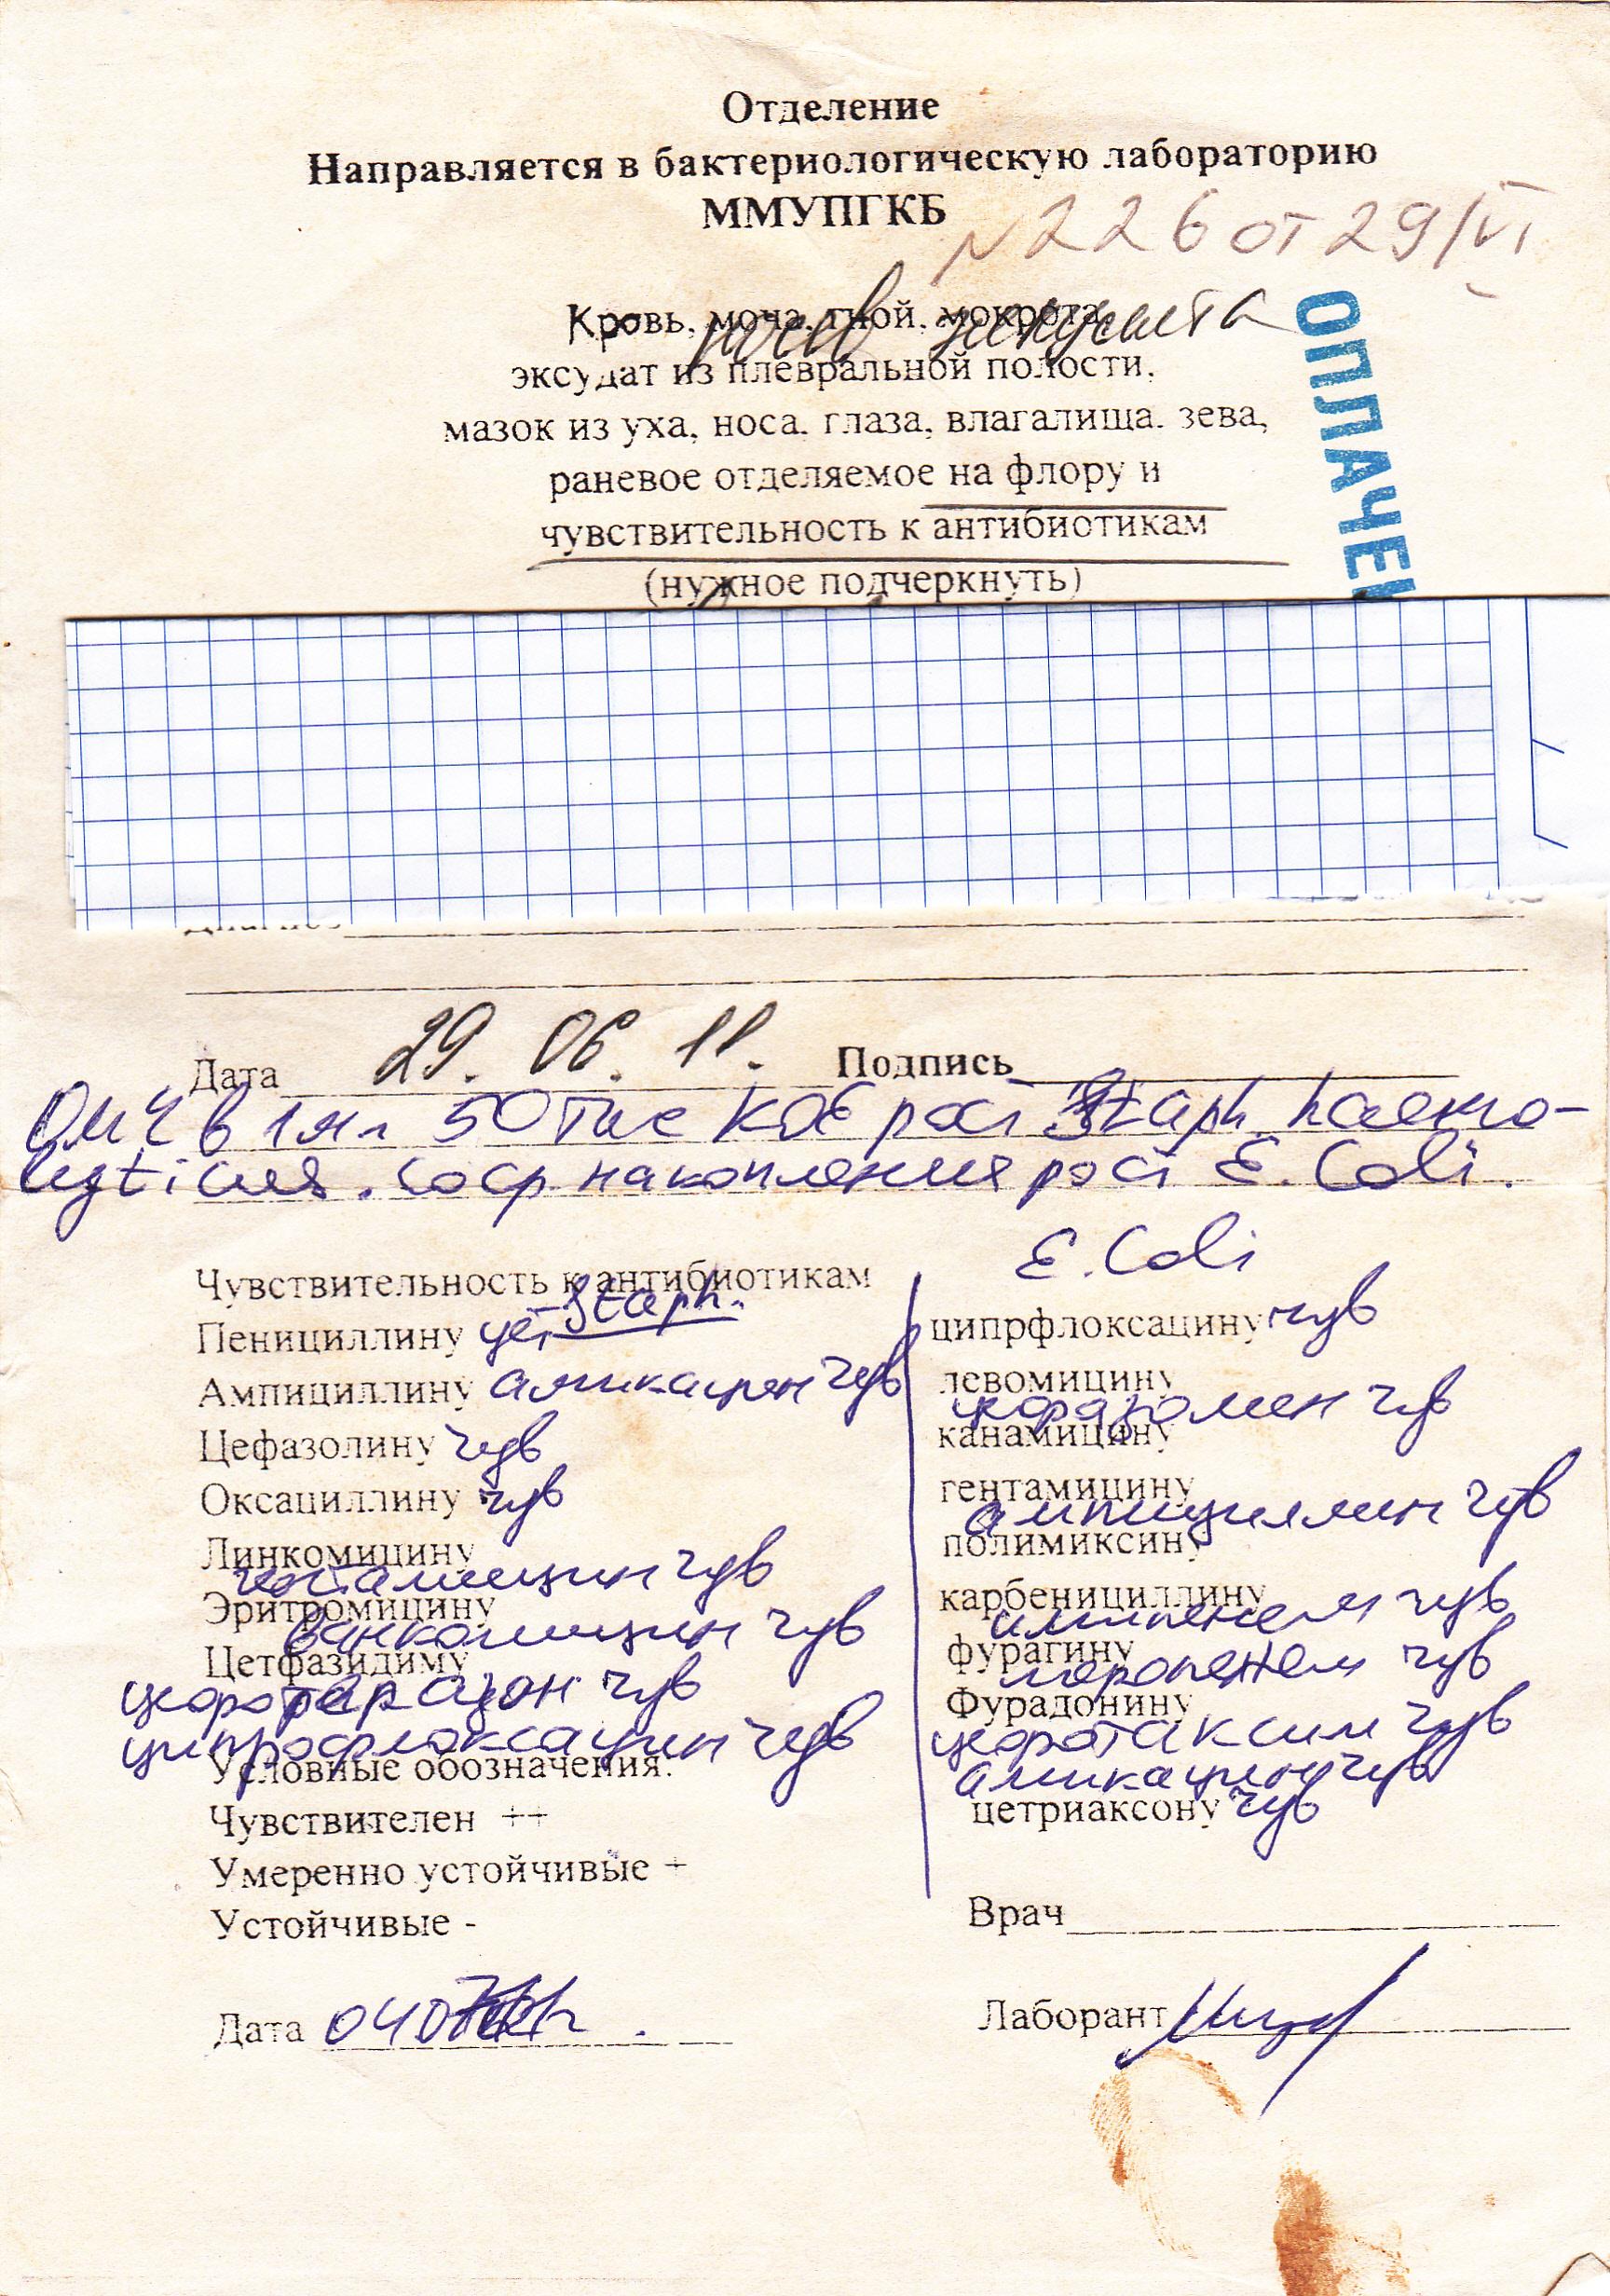 Отделение
Направляется в бактериологическую лабораторию
ММУПГКБ
N 226 от 29/VI
Кровь, моча, гной, мокрота,
посев эякулята
эксудат из плевральной полости,
мазок из уха, носа, глаза, влагалища, зева,
раневое отделяемое на флору и
чувствительность к антибиотикам
(нужное подчеркнуть)
ОПЛАЧЕН
Дата 29. 06. 11. Подпись
ОМЧ в 1 мл 50 тыс КОЕ рост Staph. haemo-
lyticus. Со ср. накопления рост E. Coli.
E. Coli
Чувствительность к антибиотикам
Staph.
Пенициллину уст
Ампициллину амикацин чув
Цефазолину чув
Оксациллину чув
Линкомицину
гентамицин чув
Эритромицину
ванкомицин чув
Цетфазидиму
цефоперазон чув
ципрофлоксацин чув
Условные обозначения:
Чувствителен ++
Умеренно устойчивые +
Устойчивые -
Дата
ципрфлоксацину чув
левомицину
чув
канамицину
гентамицину
ампициллин чув
полимиксину
карбенициллину
имипенем чув
фурагину
меропенем чув
Фурадонину
цефотаксим чув
амикацин чув
цетриаксону чув
Врач
Лаборант